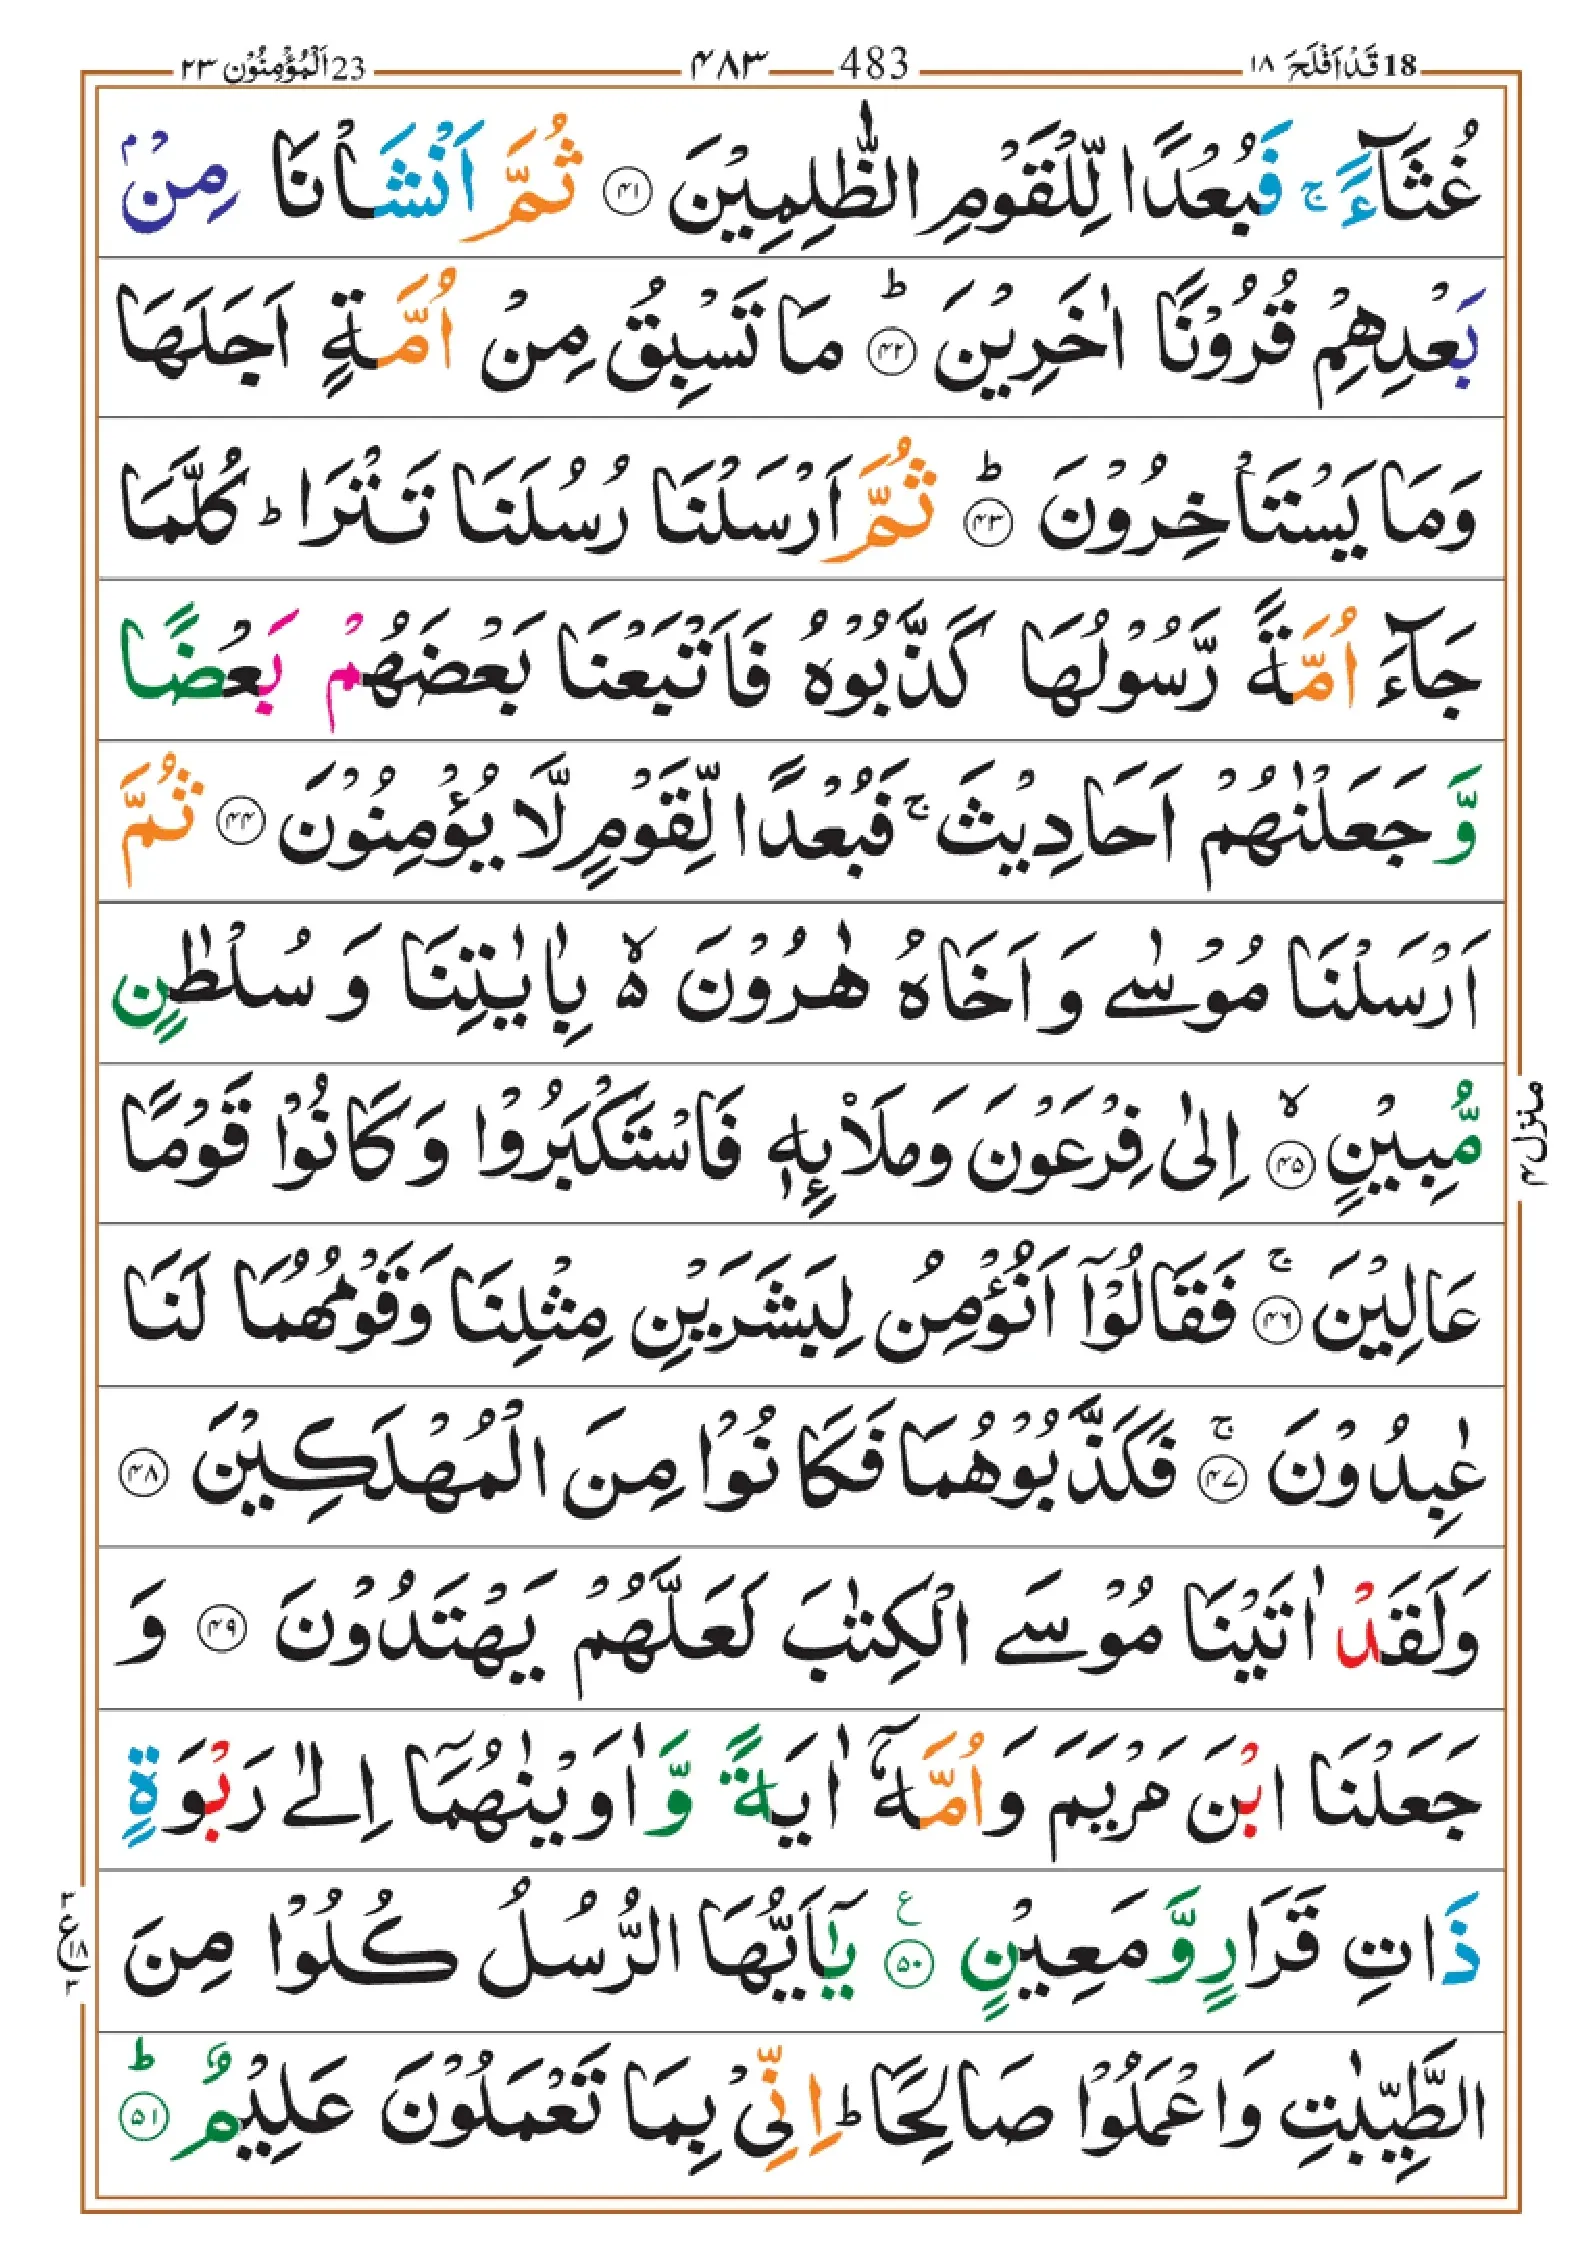 18 قَدْ اَفْلَحَ ١٨
483 ۴۸۳
23 اَلْمُؤْمِنُوْن ٢٣
غُثَآءً ۚ فَبُعْدًا لِّلْقَوْمِ الظّٰلِمِيْنَ ﴿۴۱﴾ ثُمَّ اَنْشَاْنَا مِنْۢ
بَعْدِهِمْ قُرُوْنًا اٰخَرِيْنَ ؕ﴿۴۲﴾ مَا تَسْبِقُ مِنْ اُمَّةٍ اَجَلَهَا
وَمَا يَسْتَاْخِرُوْنَ ؕ﴿۴۳﴾ ثُمَّ اَرْسَلْنَا رُسُلَنَا تَتْرَا ؕ كُلَّمَا
جَآءَ اُمَّةً رَّسُوْلُهَا كَذَّبُوْهُ فَاَتْبَعْنَا بَعْضَهُمْ بَعْضًا
وَّ جَعَلْنٰهُمْ اَحَادِيْثَ ۚ فَبُعْدًا لِّقَوْمٍ لَّا يُؤْمِنُوْنَ ﴿۴۴﴾ ثُمَّ
اَرْسَلْنَا مُوْسٰى وَ اَخَاهُ هٰرُوْنَ ۙ۬ بِاٰيٰتِنَا وَ سُلْطٰنٍ
مُّبِيْنٍ ۙ﴿۴۵﴾ اِلٰى فِرْعَوْنَ وَمَلَا۟ئِهٖ فَاسْتَكْبَرُوْا وَ كَانُوْا قَوْمًا
عَالِيْنَ ۚ﴿۴۶﴾ فَقَالُوْۤا اَنُؤْمِنُ لِبَشَرَيْنِ مِثْلِنَا وَقَوْمُهُمَا لَنَا
عٰبِدُوْنَ ۚ﴿۴۷﴾ فَكَذَّبُوْهُمَا فَكَانُوْا مِنَ الْمُهْلَكِيْنَ ﴿۴۸﴾
وَلَقَدْ اٰتَيْنَا مُوْسَى الْكِتٰبَ لَعَلَّهُمْ يَهْتَدُوْنَ ﴿۴۹﴾ وَ
جَعَلْنَا ابْنَ مَرْيَمَ وَ اُمَّهٗۤ اٰيَةً وَّ اٰوَيْنٰهُمَاۤ اِلٰى رَبْوَةٍ
ذَاتِ قَرَارٍ وَّ مَعِيْنٍ ﴿۵۰﴾ ع يٰۤاَيُّهَا الرُّسُلُ كُلُوْا مِنَ
الطَّيِّبٰتِ وَاعْمَلُوْا صَالِحًا ؕ اِنِّىْ بِمَا تَعْمَلُوْنَ عَلِيْمٌ ؕ﴿۵۱﴾
منزل ۴
٣ ع ١٨ ٣